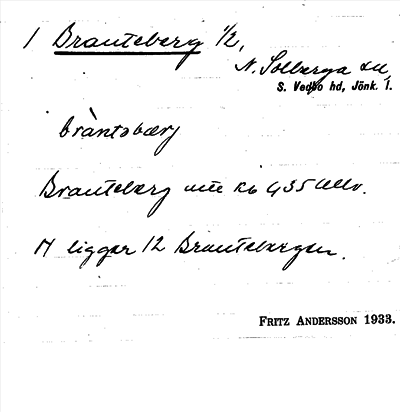 1 Branteberg 1/2,
N. Solberga sn,
S. Vedbo hd, Jönk. l.
bràntsbærj
Branteberg
M ligger 12 Brantebergen.
FRITZ ANDERSSON 1933.